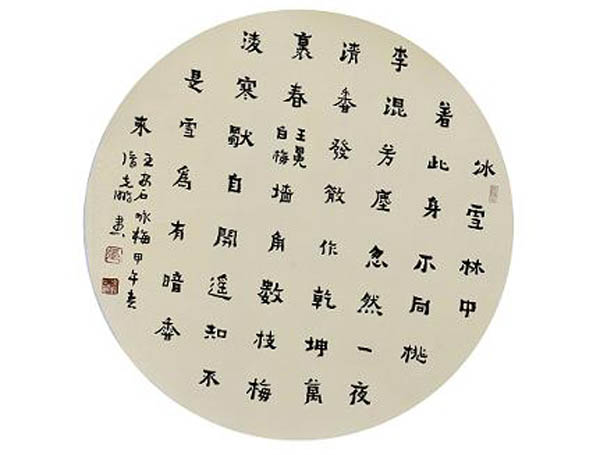 冰雪林中
著此身不同桃
李混芳塵忽然一夜
清香發散作乾坤萬
裏春
王冕
白梅
墙角數枝梅
淩寒獨自開遥知不
是雪為有暗香
來
王安石咏梅甲午春